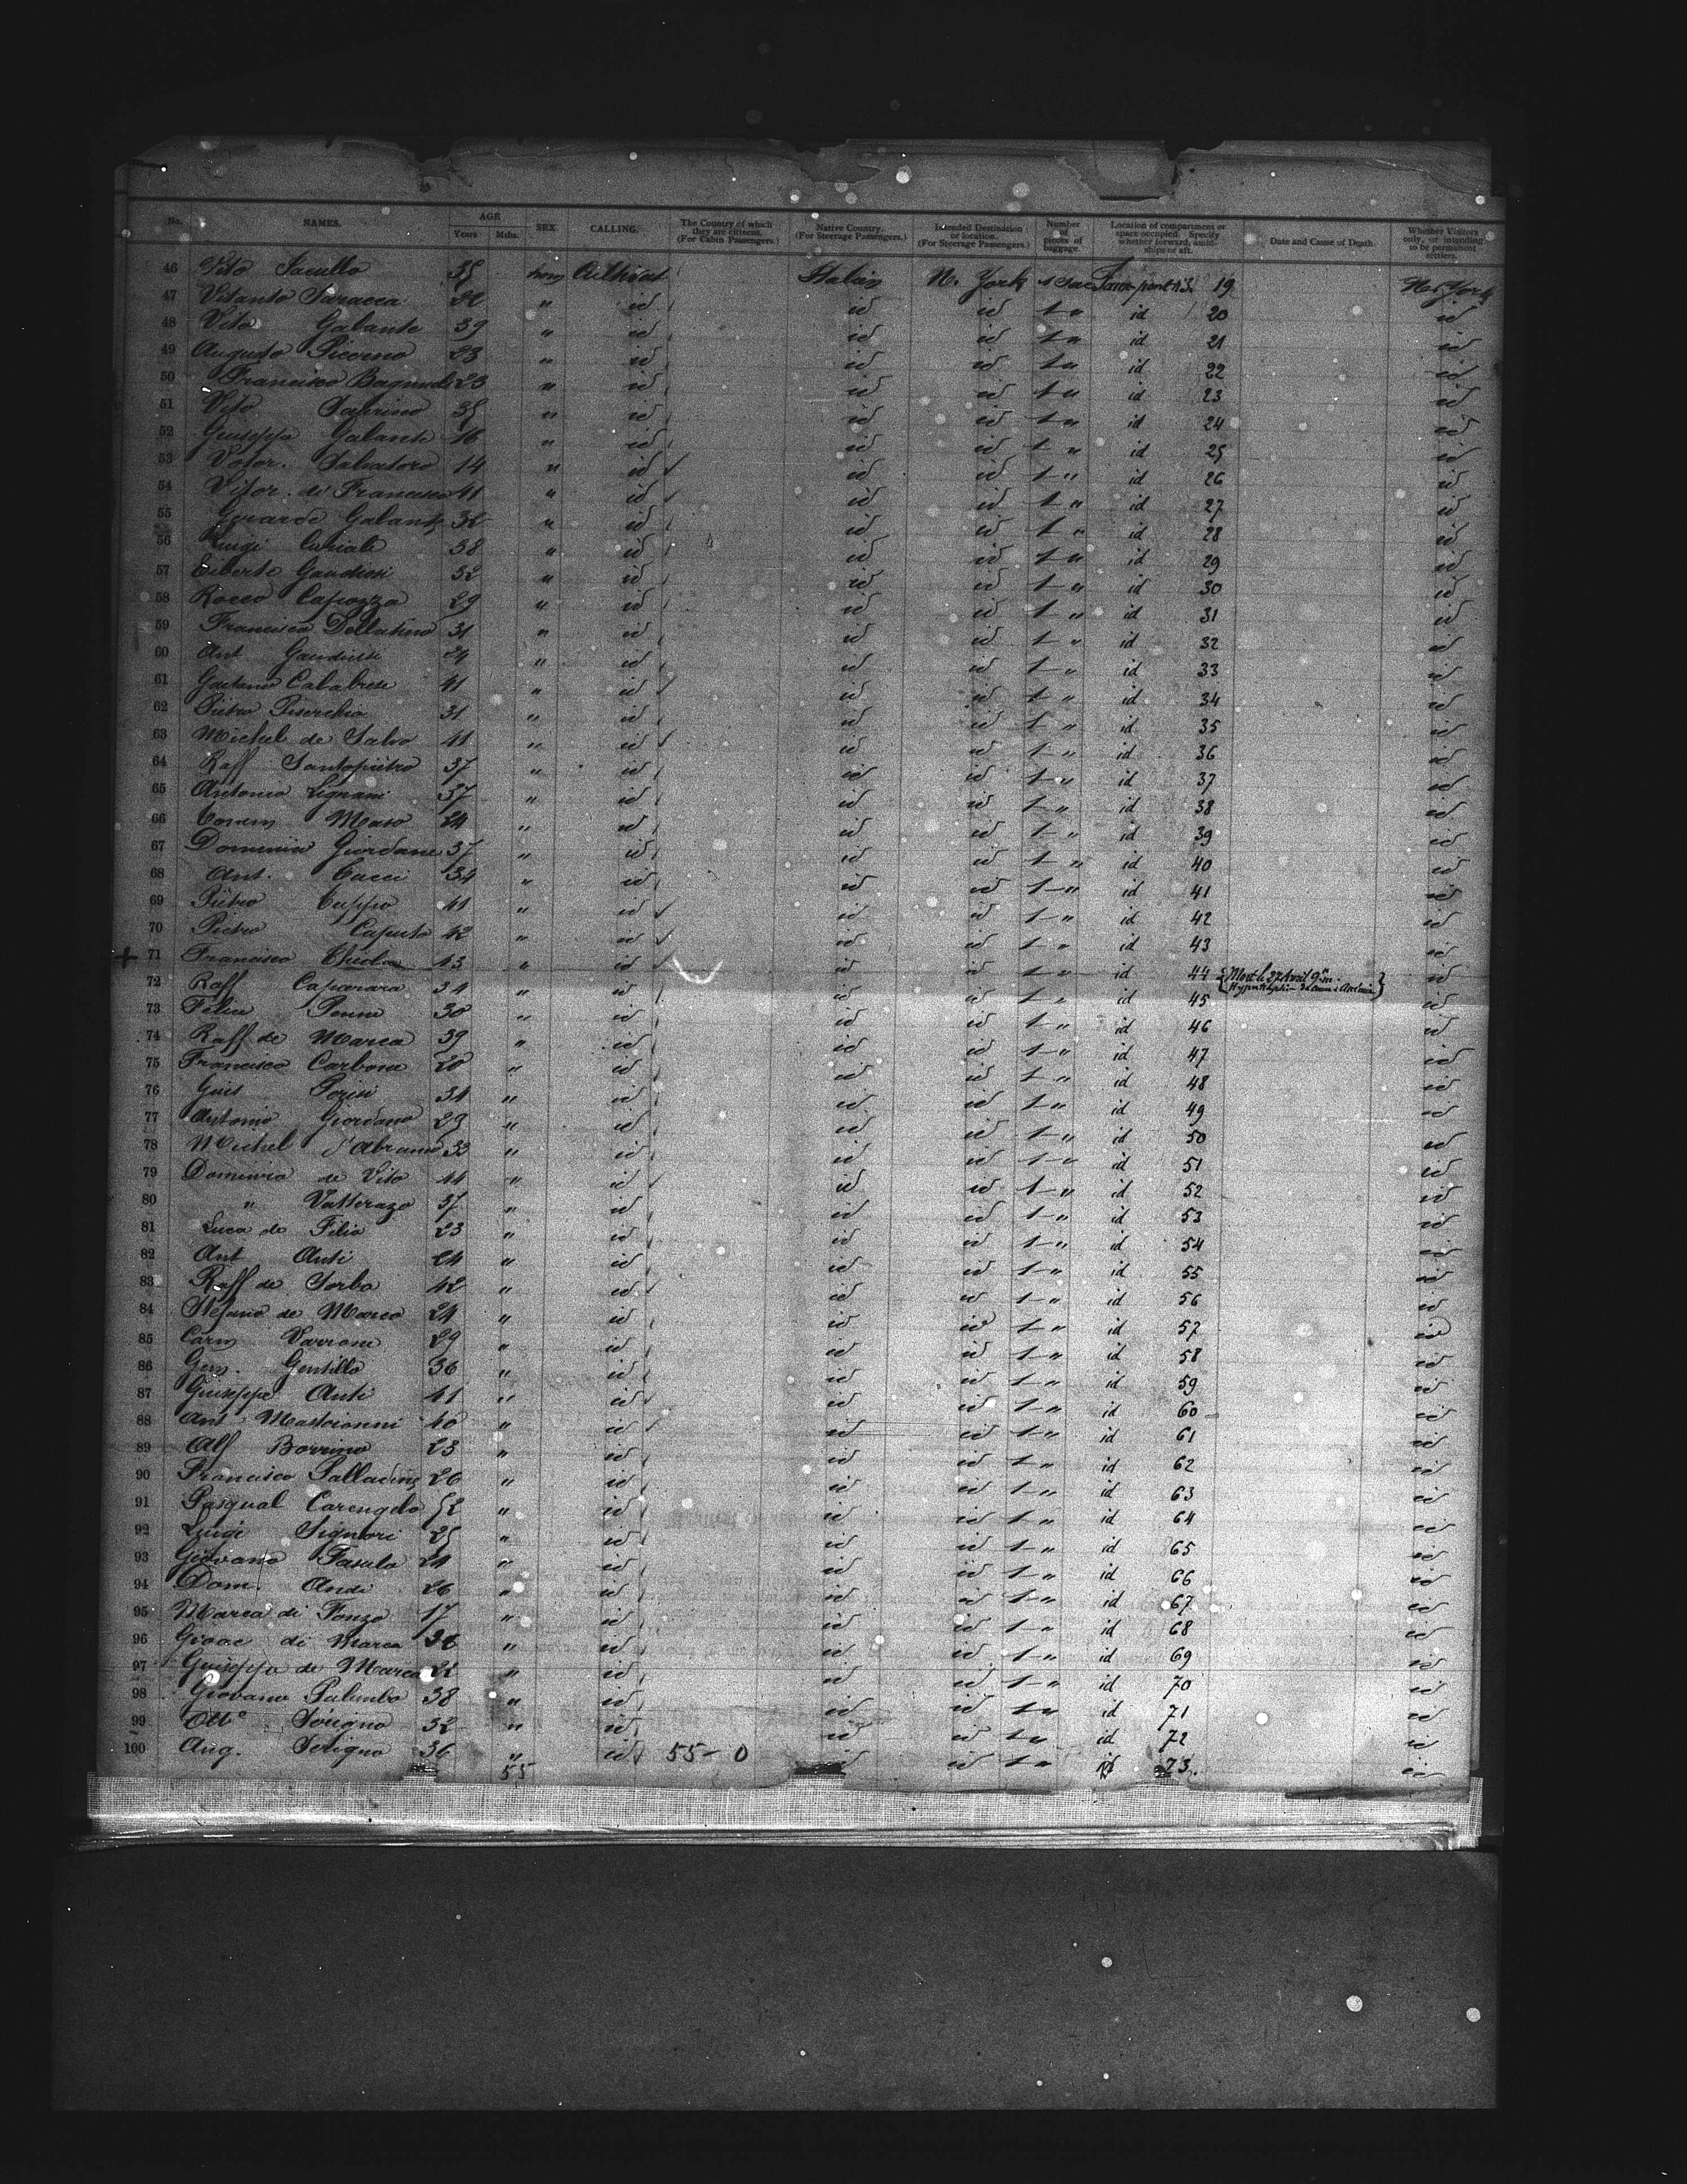 No. NAMES. AGE Years Mths. SEX. CALLING. The Country of which they are citizens. (For Cabin Passengers.) Native Country. (For Steerage Passengers.) Intended Destination or location. (For Steerage Passengers.) Number of pieces of luggage. Location of compartment or space occupied. Specify whether forward, amidships or aft. Date and Cause of Death. Whether Visitors only, or intending to be permanent settlers.
46 Vito 35 hom Cultivat Italien N. York 1 Sac 19 New York
47 Vitanto Saracca " id id id 1 " id 20 id
48 Vito Galante 39 " id id id 1 " id 21 id
49 Augusto Picerno 23 " id id id 1 " id 22 id
50 Francisco 23 " id id id 1 " id 23 id
51 Vito 35 " id id id 1 " id 24 id
52 Giuseppa Galante 16 " id id id 1 " id 25 id
53 Salvatore 14 " id id id 1 " id 26 id
54 Vitor. di Francisco 41 " id id id 1 " id 27 id
55 Gerardo Galante 32 " id id id 1 " id 28 id
56 Luigi 38 " id id id 1 " id 29 id
57 Gaudiosi 32 " id id id 1 " id 30 id
58 Rocco Capozza 29 " id id id 1 " id 31 id
59 Francisco Dellatino 31 " id id id 1 " id 32 id
60 Ant 24 " id id id 1 " id 33 id
61 Gaetano Calabrese 41 " id id id 1 " id 34 id
62 Pietro Piserchia 31 " id id id 1 " id 35 id
63 Michel de Salvo 41 " id id id 1 " id 36 id
64 Raff Santopietro 37 " id id id 1 " id 37 id
65 Antonio Lignani 37 " id id id 1 " id 38 id
66 Maso 24 " id id id 1 " id 39 id
67 Dominico Giordane 37 " id id id 1 " id 40 id
68 Ant. Cacci 34 " id id id 1 " id 41 id
69 Pietro Cuppo 41 " id id id 1 " id 42 id
70 Pietro Caputo 42 " id id id 1 " id 43 id
+ 71 Francisco 43 " id id id 1 " id 44 Mort le 27 Avril 9h m id
72 Raff Caparara 34 " id id id 1 " id 45 id
73 Felice Penna 30 " id id id 1 " id 46 id
74 Raff de Marca 39 " id id id 1 " id 47 id
75 Francisco Carbona 20 " id id id 1 " id 48 id
76 Gius 31 " id id id 1 " id 49 id
77 Antonio Giordano 29 " id id id 1 " id 50 id
78 Michel d'Abramo 33 " id id id 1 " id 51 id
79 Dominico de Vito 44 " id id id 1 " id 52 id
80 " Vatterazo 37 " id id id 1 " id 53 id
81 Luca de Filio 23 " id id id 1 " id 54 id
82 Ant Auti 24 " id id id 1 " id 55 id
83 Raff de Sorbo 42 " id id id 1 " id 56 id
84 Stefano de Marco 24 " id id id 1 " id 57 id
85 Carm Varrone 29 " id id id 1 " id 58 id
86 Gen. Gentillo 36 " id id id 1 " id 59 id
87 Giuseppe Auti 41 " id id id 1 " id 60 id
88 Ant Mastoianni 40 " id id id 1 " id 61 id
89 Alf Borrino 23 " id id id 1 " id 62 id
90 Francisco Palladino 26 " id id id 1 " id 63 id
91 Pasqual Carengelo 52 " id id id 1 " id 64 id
92 Luigi Signori 25 " id id id 1 " id 65 id
93 Giovano Fasulo 24 " id id id 1 " id 66 id
94 Dom. Andi 26 " id id id 1 " id 67 id
95 Marca di Fonzo 17 " id id id 1 " id 68 id
96 Gioac di Marca " id id id 1 " id 69 id
97 Guiseppa de Marca 22 " id id id 1 " id 70 id
98 Giovano Palumbo 38 " id id id 1 " id 71 id
99 Serigno 32 " id id id 1 " id 72 id
100 Aug. Serigno 36 " id 55-0 id id 1 " id 73 id
55